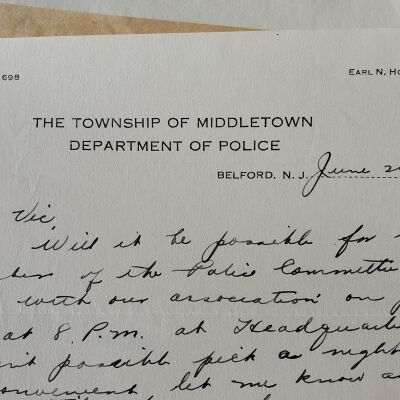 698
EARL N. HO
THE TOWNSHIP OF MIDDLETOWN
DEPARTMENT OF POLICE
BELFORD, N. J. June 2
Vic
Will it be possible for
bers of the Police Committee
with our association on
at 8. P.M. at Headquarte
ent possible pick a night
onvenient, let me know a